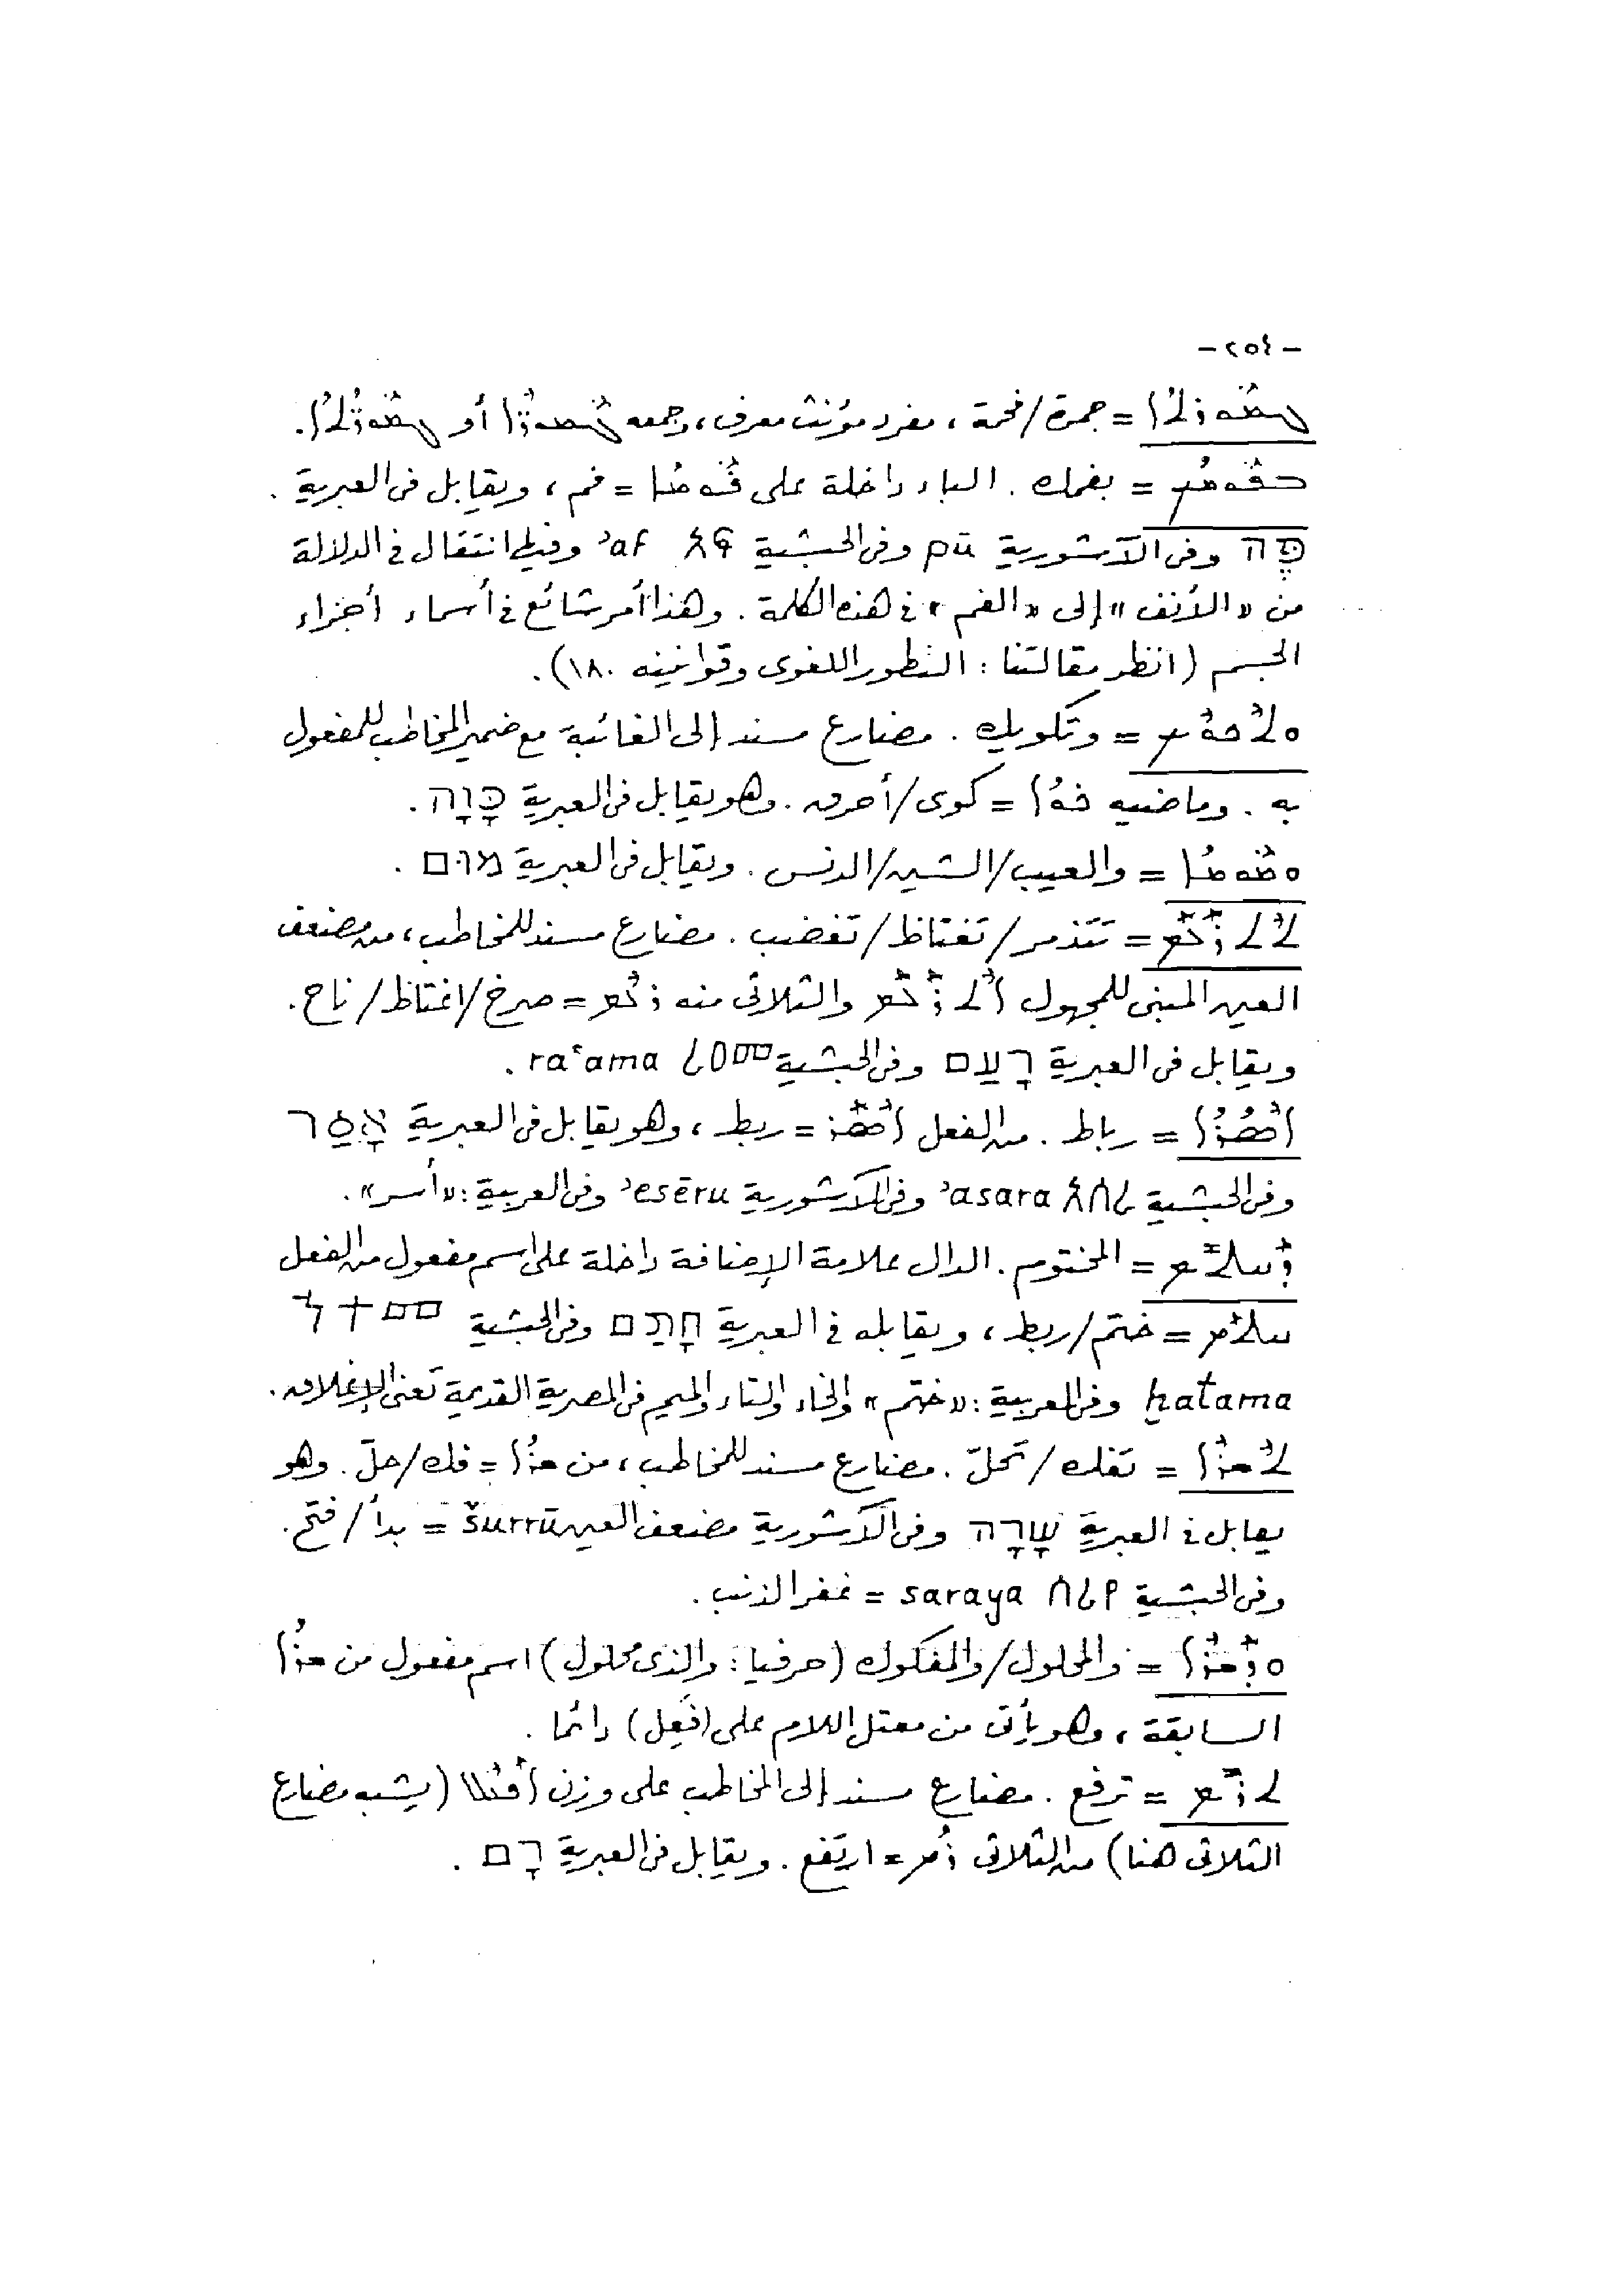 - ٢٥٤ -
ܓܡܘܪܬܐ = جمرة/فحمة، مفرد مؤنث معرف، وجمعه ܓܡܘܪ̈ܐ أو ܓܡܘܪ̈ܬܐ.
ܒܦܘܡܟ = بفمك. الباء داخلة على ܦܘܡܐ = فم، ويقابل فى العبرية
פֶּה وفى الآشورية pū وفى الحبشية አፍ ʾaf وفيها انتقال فى الدلالة
من «الأنف» إلى «الفم» فى هذه الكلمة. وهذا أمر شائع فى أسماء أجزاء
الجسم (انظر مقالتنا: التطور اللغوى وقوانينه ١٨٠).
ܘܬܟܘܝܟ = وتكويك. مضارع مسند إلى الغائبة مع ضمير المخاطب للمفعول
به. وماضيه ܟܘܐ = كوى/أحرق. وهو يقابل فى العبرية כָּוָה.
ܘܡܘܡܐ = والعيب/الشين/الدنس. ويقابل فى العبرية מוּם.
ܬܬܪܥܡ = تتذمر/تغتاظ/تغضب. مضارع مسند للمخاطب، من مضعف
العين المبنى للمجهول ܐܬܪܥܡ والثلاثى منه ܪܥܡ = صرخ/اغتاظ/ناح.
ويقابل فى العبرية רָעַם وفى الحبشية ረዐመ raʿama.
ܐܣܪܐ = رباط. من الفعل ܐܣܪ = ربط، وهو يقابل فى العبرية אָסַר
وفى الحبشية አሰረ ʾasara وفى الآشورية ʾesēru وفى العربية: «أسر».
ܕܚܬܝܡ = المختوم. الدال علامة الإضافة داخلة على اسم مفعول من الفعل
ܚܬܡ = ختم/ربط، ويقابله فى العبرية חָתַם وفى الحبشية ኀተመ
ḫatama وفى العربية: «ختم» والخاء والتاء والميم فى المصرية القديمة تعنى الإغلاق.
ܬܫܪܐ = تفك/تحلّ. مضارع مسند للمخاطب، من ܫܪܐ = فك/حلّ. وهو
يقابل فى العبرية שָׁרָה وفى الآشورية مضعف العين šurrū = بدأ/فتح.
وفى الحبشية ሰረየ saraya = غفر الذنب.
ܘܕܫܪܐ = والمحلول/والمفكوك (حرفيا: والذى محلول) اسم مفعول من ܫܪܐ
السابقة، وهو يأتى من معتل اللام على (فَعِل) دائما.
ܬܪܝܡ = ترفع. مضارع مسند إلى المخاطب على وزن ܐܦܥܠ (يشبه مضارع
الثلاثى هنا) من الثلاثى ܪܡ = ارتفع. ويقابل فى العبرية רָם.